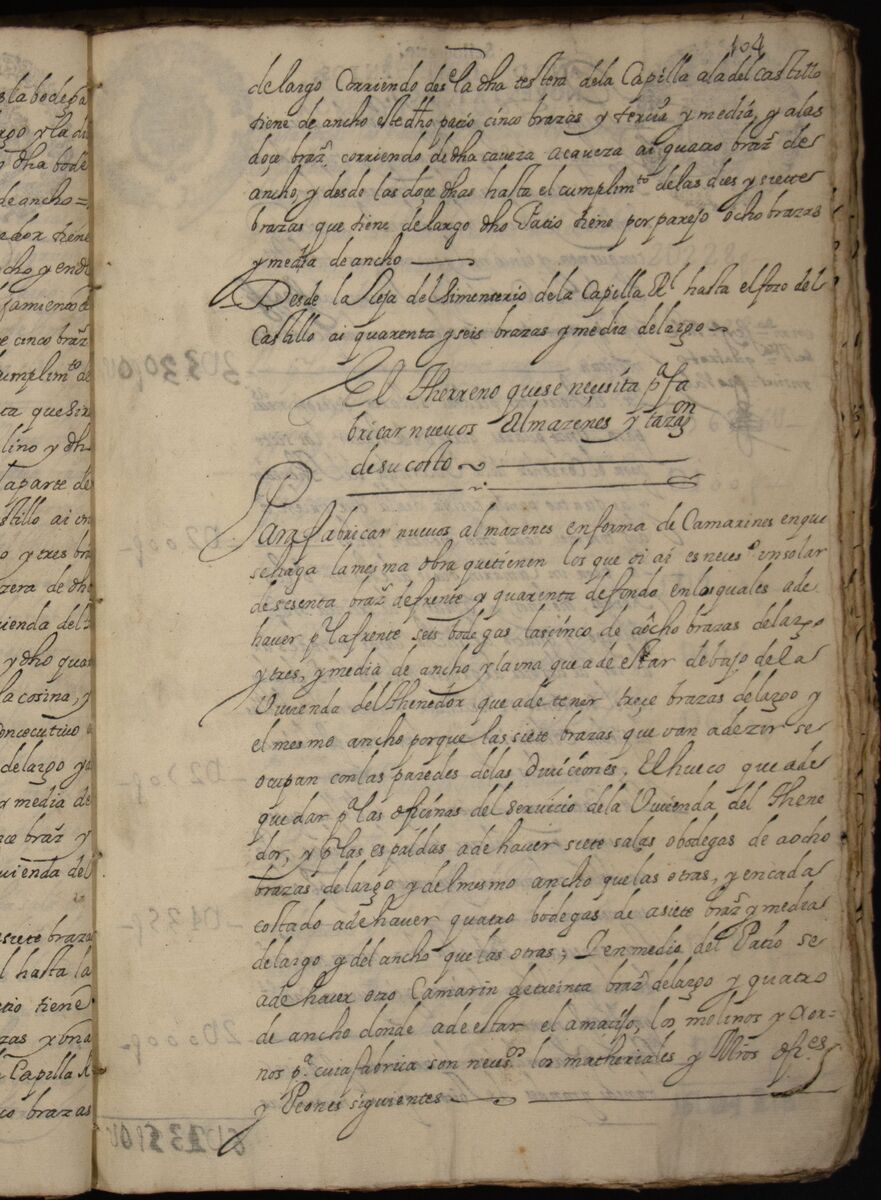 104
de largo Corriendo desᵉ la dha testera dela Capilla ala del castillo
tiene de ancho este dho patio cinco brazas y tercia y media, y alas
doce brazˢ corriendo de dha caveza acaveza ai quatro brazˢ de
ancho, y desde las doce dhas hasta el cumplimᵗᵒ de las dies y siette
brazas que tiene de largo dho Patio tiene por parejo ocho brazas
y media de ancho
Desde la Reja del Simenterio dela Capilla Rˡ hasta el foso del
Castillo ai quarenta y seis brazas y media de largo
El Therreno que se necesita pᵃ fa
bricar nuevos Almazenes y tazazⁱᵒⁿ
de su costo
Para fabricar nuevos almazenes en forma de Camarines en que
se haga la mesma obra que tienen los que oi ai es necesᵒ un solar
de sesenta brazˢ de frente y quarenta de fondo en los quales ade
haver pʳ la frente seis bodegas las cinco de aôcho brazas de largo
y tres, y media de ancho y la una que ade estar debajo dela
Vivienda del Thenedor que ade tener trece brazas de largo y
el mesmo ancho porque las siete brazas que van adezir se
ocupan con las paredes delas Diviciones, El hueco que ade
quedar pᵃ las oficinas del servicio dela Vivienda del Thene
dor, y pʳ las espaldas ade haver siete salas o bodegas de aocho
brazas de largo y del mismo ancho que las otras, y en cada
costado ade haver quatro bodegas de asiete brazˢ y media
de largo y del ancho que las otras; Y en medio del Patio se
ade haver otro Camarin de treinta brazˢ de largo y quatro
de ancho donde ade estar el amacijo, los molinos y Xor=
nos pᵃ cuia fabrica son necesᵒˢ los matheriales y Mrôs ofiᵉˢ
y Peones siguientes
de la bodega
largo y la di
dha bode
de ancho=
edor tiene
cho y en dᵉ
jamiento de
e cinco brazˢ
cumplimᵗᵒ de
ta que sir
lino y dh
la parte de
stillo ai un
o y tres bra
zera de dho
vienda del
y dho quar
la cosina, y
concecutivo
de largo y a
y media de
ce brazˢ y
vivienda del
siete brazas
l hasta la
atio tiene
zas y una
a Capilla R
co brazas